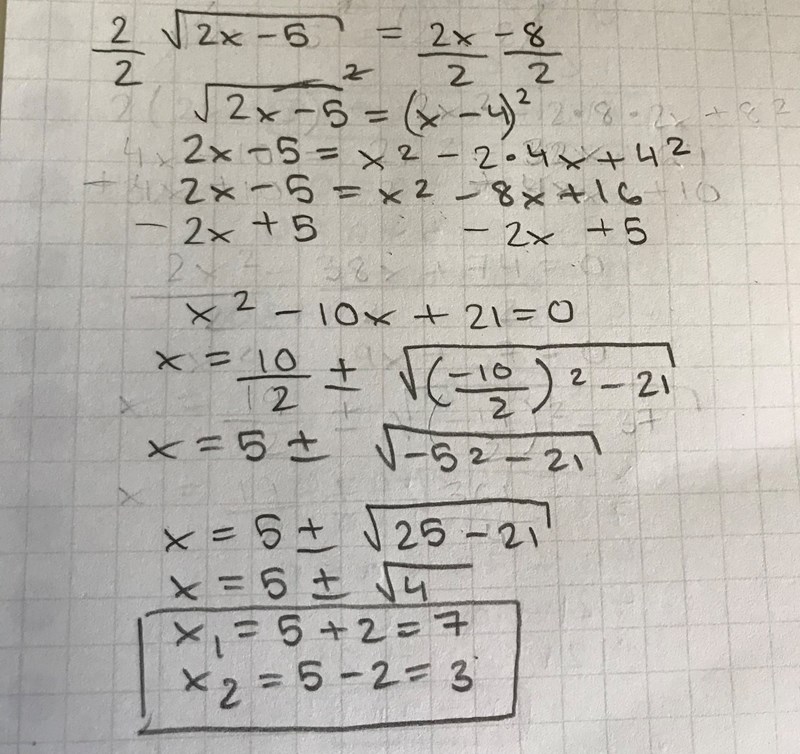 2/2 √(2x-5) = 2x/2 - 8/2
√(2x-5)² = (x-4)²
2x-5 = x² - 2·4x + 4²
2x-5 = x² - 8x + 16
-2x+5 -2x +5
x² - 10x + 21 = 0
x = 10/2 ± √((-10/2)² - 21)
x = 5 ± √(-5² - 21)
x = 5 ± √(25-21)
x = 5 ± √4
x₁ = 5+2 = 7
x₂ = 5-2 = 3